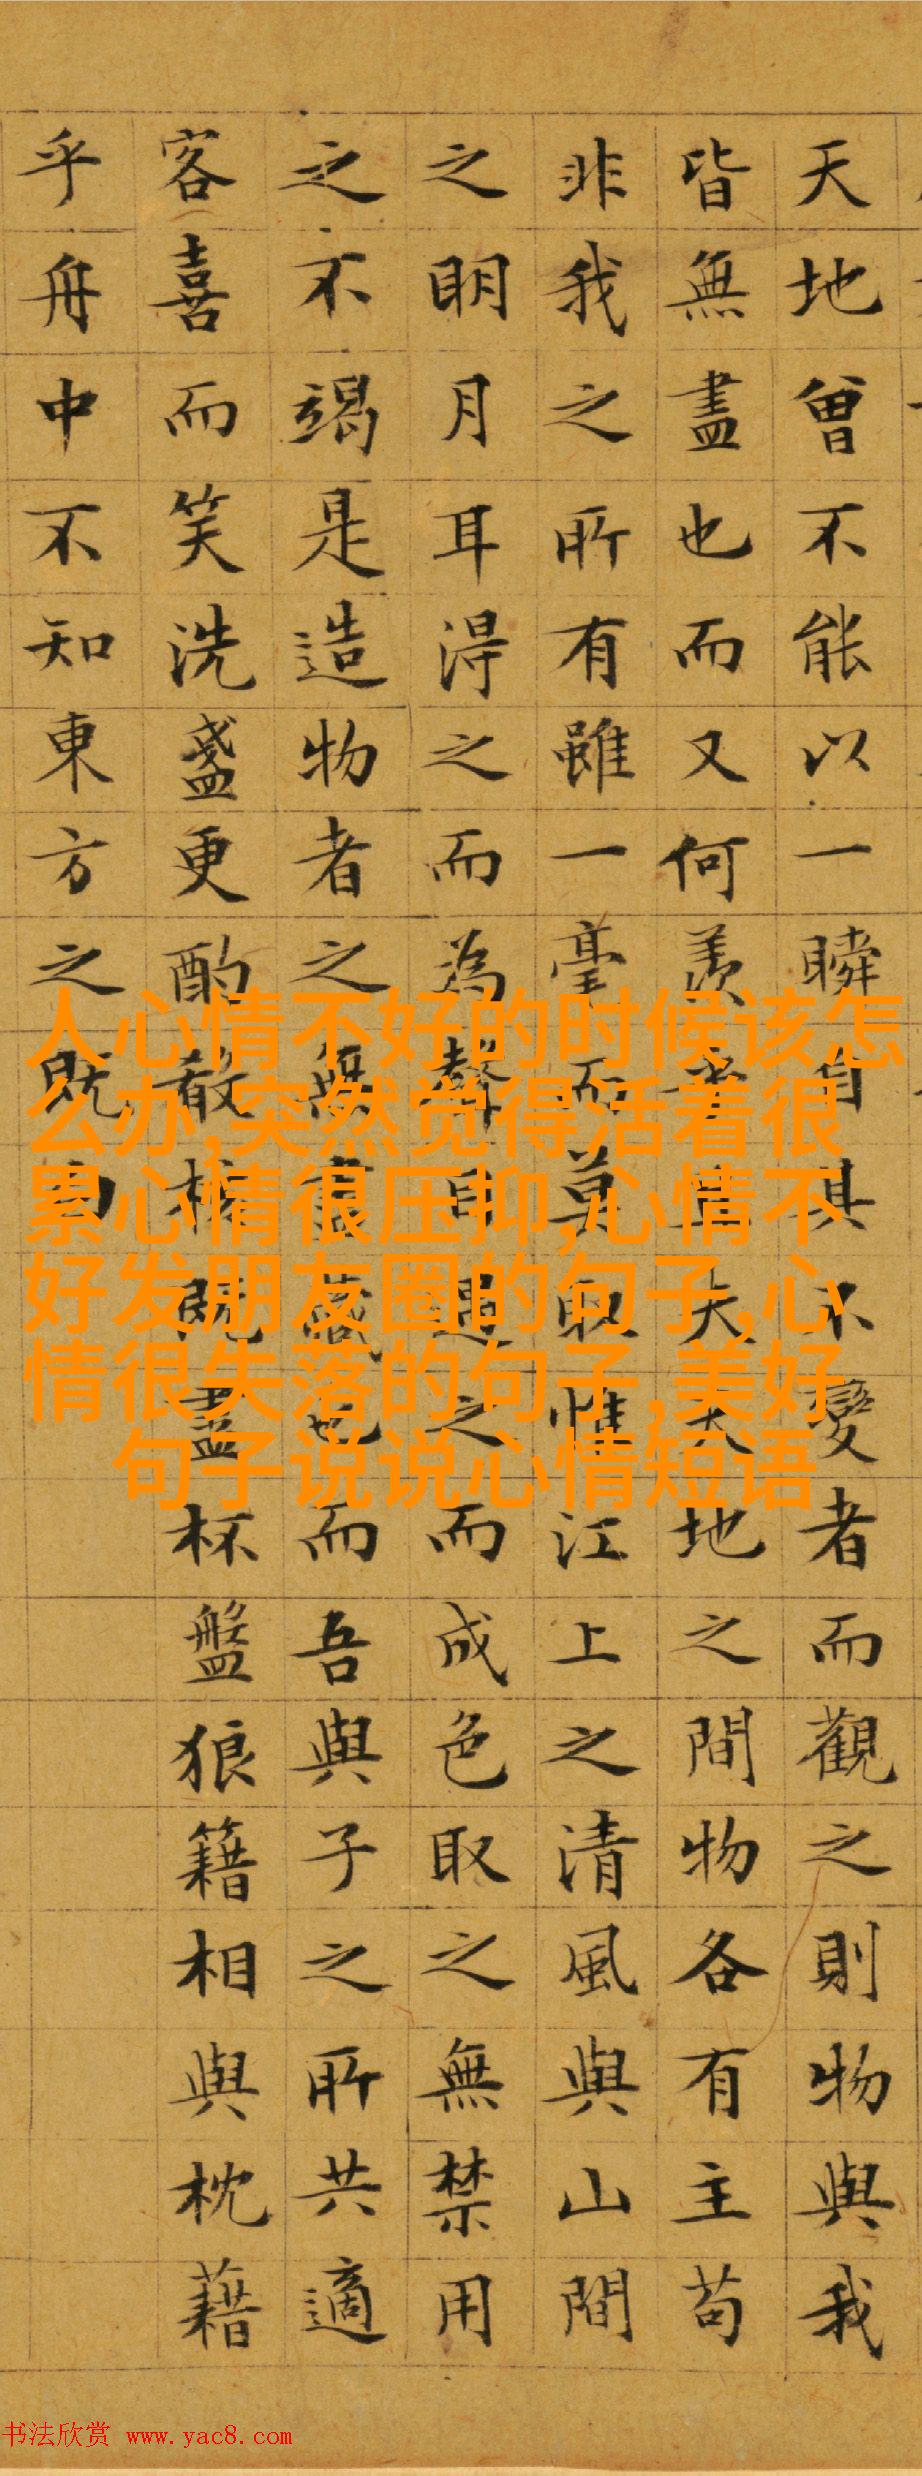 天地曾不能以一瞬自其不變者而觀之則物與我
皆無盡也而又何羨乎且夫天地之間物各有主苟
非我之所有雖一毫而莫取惟江上之清風與山間
之明月耳得之而為聲目遇之而成色取之無禁用
之不竭是造物者之無盡藏也而吾與子之所共適
客喜而笑洗盞更酌殽核既盡杯盤狼籍相與枕藉
乎舟中不知東方之既白
人心情不好的时候该怎
么办,突然觉得活着很
累心情很压抑,心情不
好发朋友圈的句子,心
情很失落的句子,美好
句子说说心情短语
书法欣赏 www.yac8.com